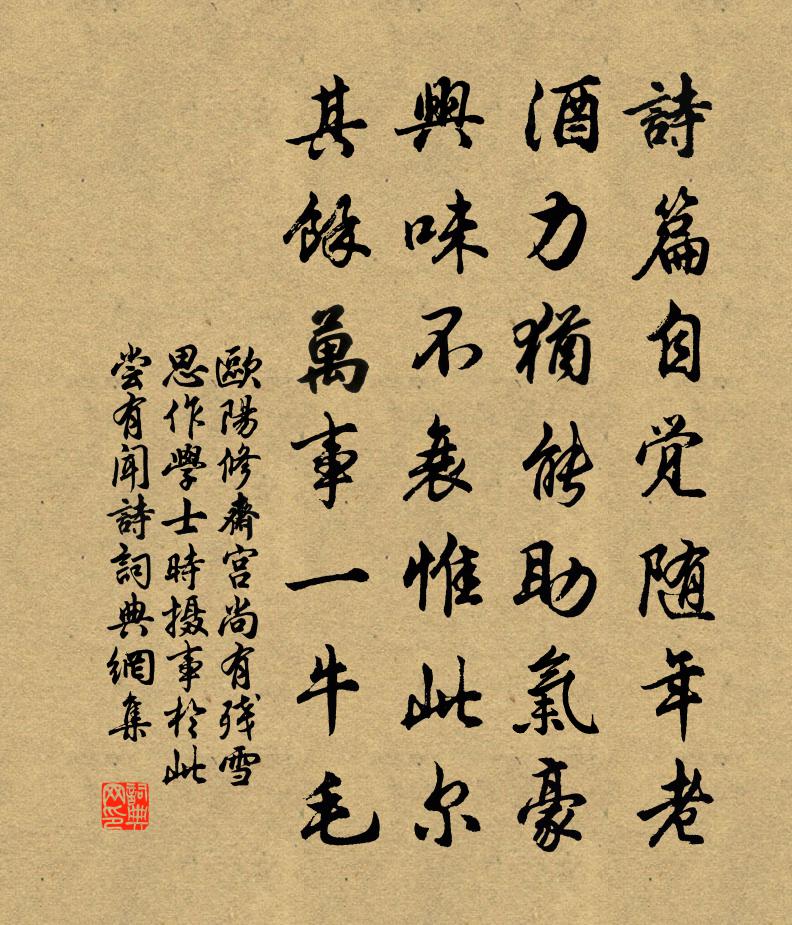 詩篇自觉随年老
酒力猶能助氣豪
興味不衰惟此尔
其餘萬事一牛毛
歐陽修齋宫尚有残雪
思作學士時摄事於此
尝有闻詩詞典網集
詞典网印